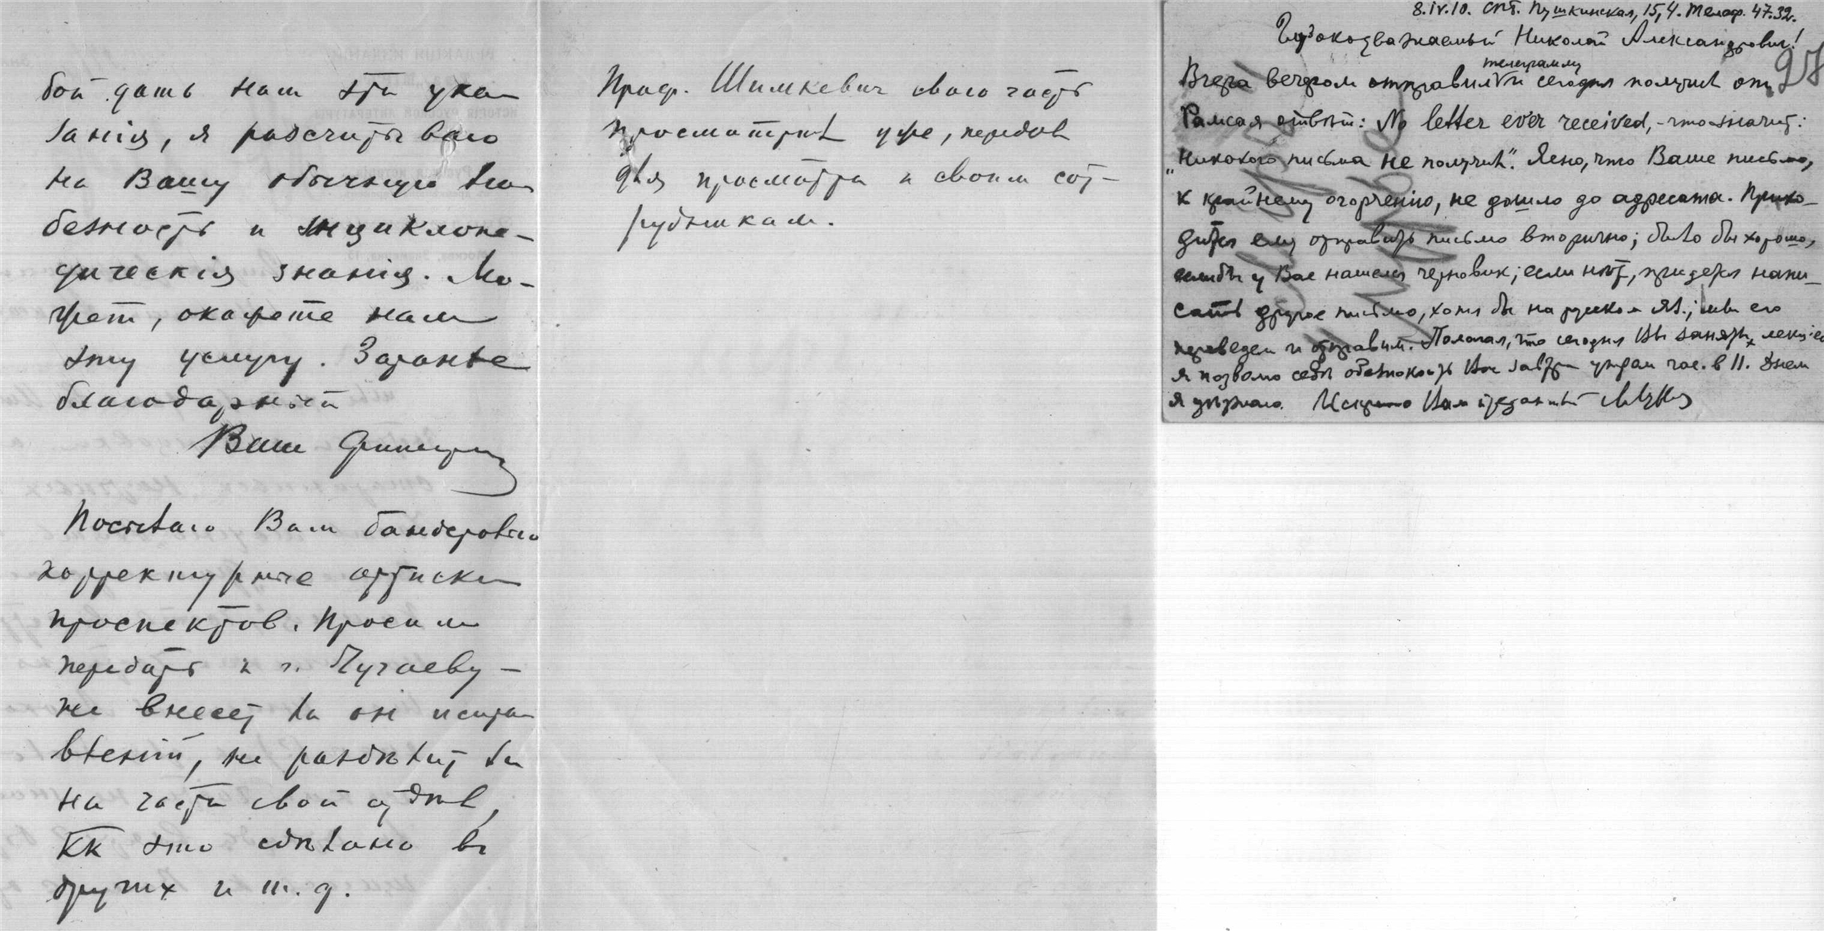 бой дать нам эти ука
занія, я разсчитываю
на Вашу обычную лю
безность и энциклопе-
дическія знанія. Мо-
жет, окажете нам
эту услугу. Заранѣе
благодарный
Ваш
Посылаю Вам бандеролью
корректурные оттиски
проспектов. Просим
передать и г. Чугаеву –
не внесет ли он исправ
вленій, не раздѣлит ли
на части свой отдѣл,
кк это сдѣлано в
других и т. д.
Проф. Шимкевич свою часть
просмотрит уже, передав
для просмотра и своим сот-
рудникам.
8.IV.10. СПб. Пушкинская, 15, 4. Телеф. 47.32.
Глубокоуважаемый Николай Александрович!
телеграмму
Вчера вечером отправил и сегодня получил от
Рамсая отвѣт: No letter ever received, - что значит:
„никакого письма не получил". Ясно, что Ваше письмо,
к крайнему огорченію, не дошло до адресата. Прихо-
дится ему отправить письмо вторично; было бы хорошо,
если бы у Вас нашелся черновик; если нѣт, придется напи-
сать другое письмо, хотя бы на русском яз.; мы его
переведем и отправим. Полагая, что сегодня Вы заняты лекціей
я позволю себѣ обезпокоить Вас завтра утром час. в 11. Днем
я уѣзжаю. Искренно Вам преданный